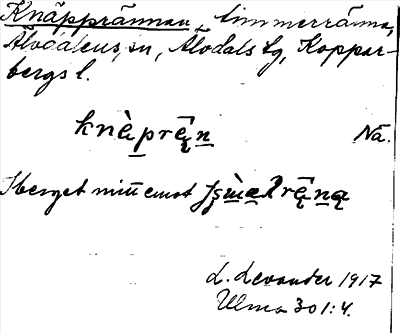 Knäpprännan, timmerränna,
Älvdalens sn, Älvdals tg, Koppar-
bergs l.
knèprę̂n Nä.
Iberget mitt emot
L. Levander 1917
Ulma 301:4.